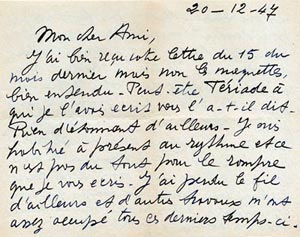 20-12-47
Mon cher Ami,
J'ai bien reçu votre lettre du 15 du
mois dernier mais non les maquettes,
bien entendu - Peut-être Tériade à
qui je l'avais écrit vous l'a-t-il dit.
Rien d'étonnant d'ailleurs - Je suis
habitué à présent au rythme et ce
n'est pas du tout pour le rompre
que je vous écris - J'ai perdu le fil
d'ailleurs et d'autres travaux m'ont
assez occupé tous ces derniers temps-ci -